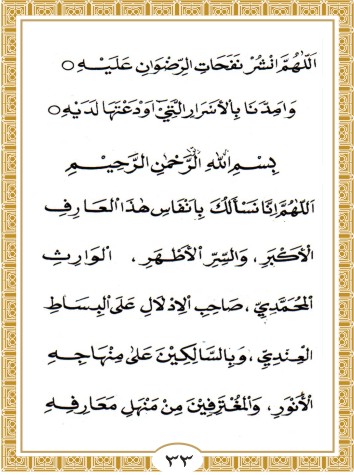 اَللّٰهُمَّ انْشُرْ نَفَحَاتِ الرِّضْوَانِ عَلَيْهِ ○
وَاَمِدَّنَا بِالْاَسْرَارِ الَّتِيْ اَوْدَعْتَهَا لَدَيْهِ ○
بِسْمِ اللهِ الرَّحْمٰنِ الرَّحِيْمِ
اَللّٰهُمَّ اِنَّا نَسْأَلُكَ بِاَنْفَاسِ هٰذَا الْعَارِفِ
الْاَكْبَرِ ، وَالسِّرِّ الْاَظْهَرِ ، الْوَارِثِ
الْمُحَمَّدِيِّ ، صَاحِبِ الْاِدْلَالِ عَلَى الْبِسَاطِ
الْعِنْدِيِّ ، وَبِالسَّالِكِيْنَ عَلٰى مِنْهَاجِهِ
الْاَنْوَرِ ، وَالْمُغْتَرِفِيْنَ مِنْ مَنْهَلِ مَعَارِفِهِ
٣٣